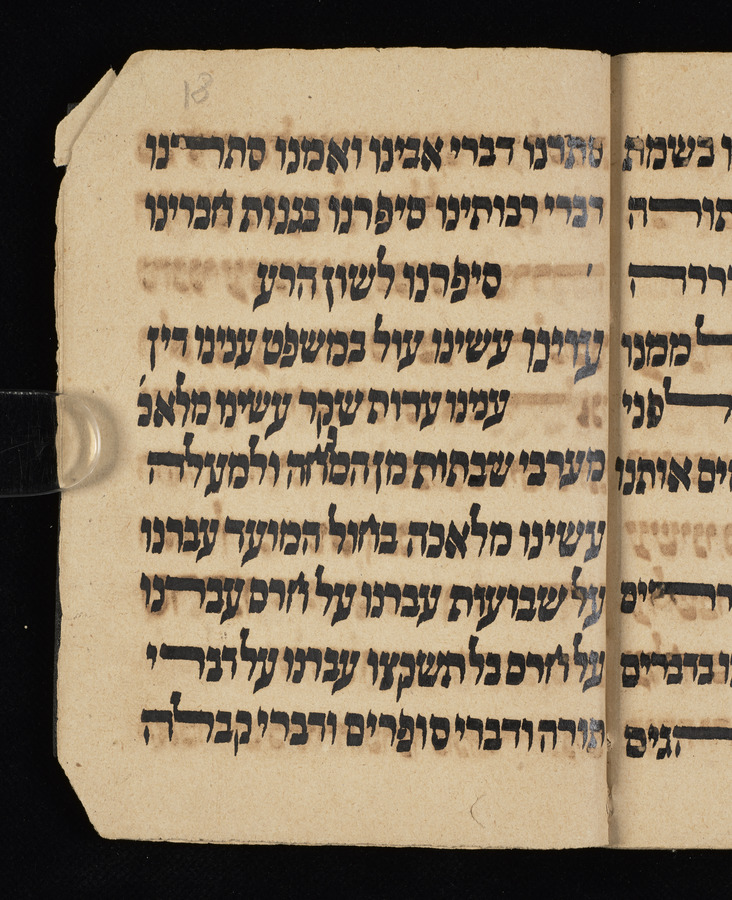 בשמת
ממנו
אותנו
בדברים
סתרנו דברי אבינו ואמנו סתרנו
דברי רבותינו סיפרנו בגנות חברינו
סיפרנו לשון הרע
עוינו עשינו עול במשפט ענינו דין
ענינו עדות שקר עשינו מלאכ'
מערבי שבתות מן המנחה ולמעלה
עשינו מלאכה בחול המועד עברנו
על שבועות עברנו על חרם עברנו
על חרם בל תשקצו עברנו על דברי
תורה ודברי סופרים ודברי קבלה
18